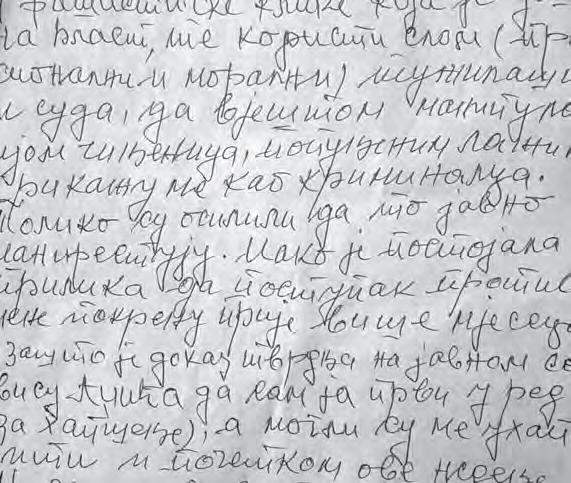 фашистичке клике која је
на власти, те користи слом (пр
сионални и морални) тужилашт
и суда, да вјештом манипула
јом чињеница, потпуним лажи
прикажу ме као криминалца.
Толико су осилили да то јавно
манифестују. Иако је постојала
прилика да поступак против
мене покрену прије више мјесеци
зашто је доказ тврдња на јавном се
вису Лучића да сам ја први у ред
за хапшење), а могли су ме ухап
сити и почетком ове недеље